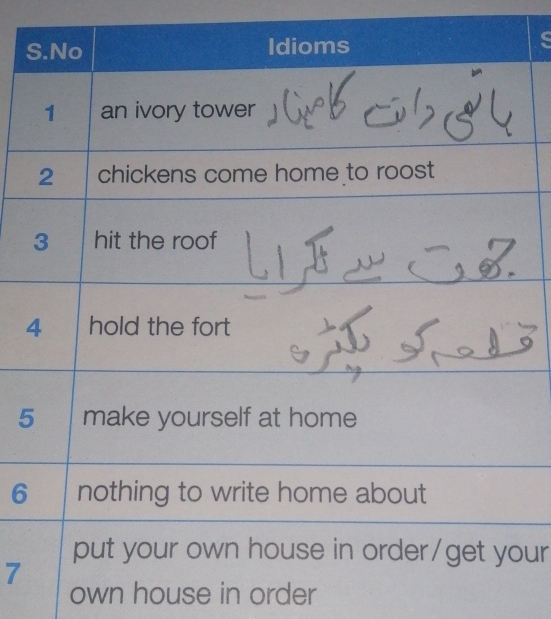 S.No Idioms S
1 an ivory tower ہاتھی دانت کا مینار
2 chickens come home to roost
3 hit the roof چھت سے ٹکرایا
4 hold the fort قلعہ کو پکڑو
5 make yourself at home
6 nothing to write home about
7 put your own house in order/get your
own house in order